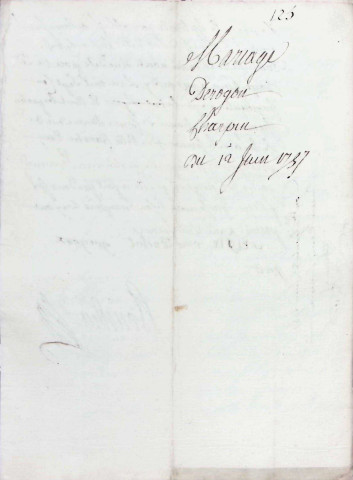 125
Mariage
Derogon
Charpin
du 12 Juin 1737